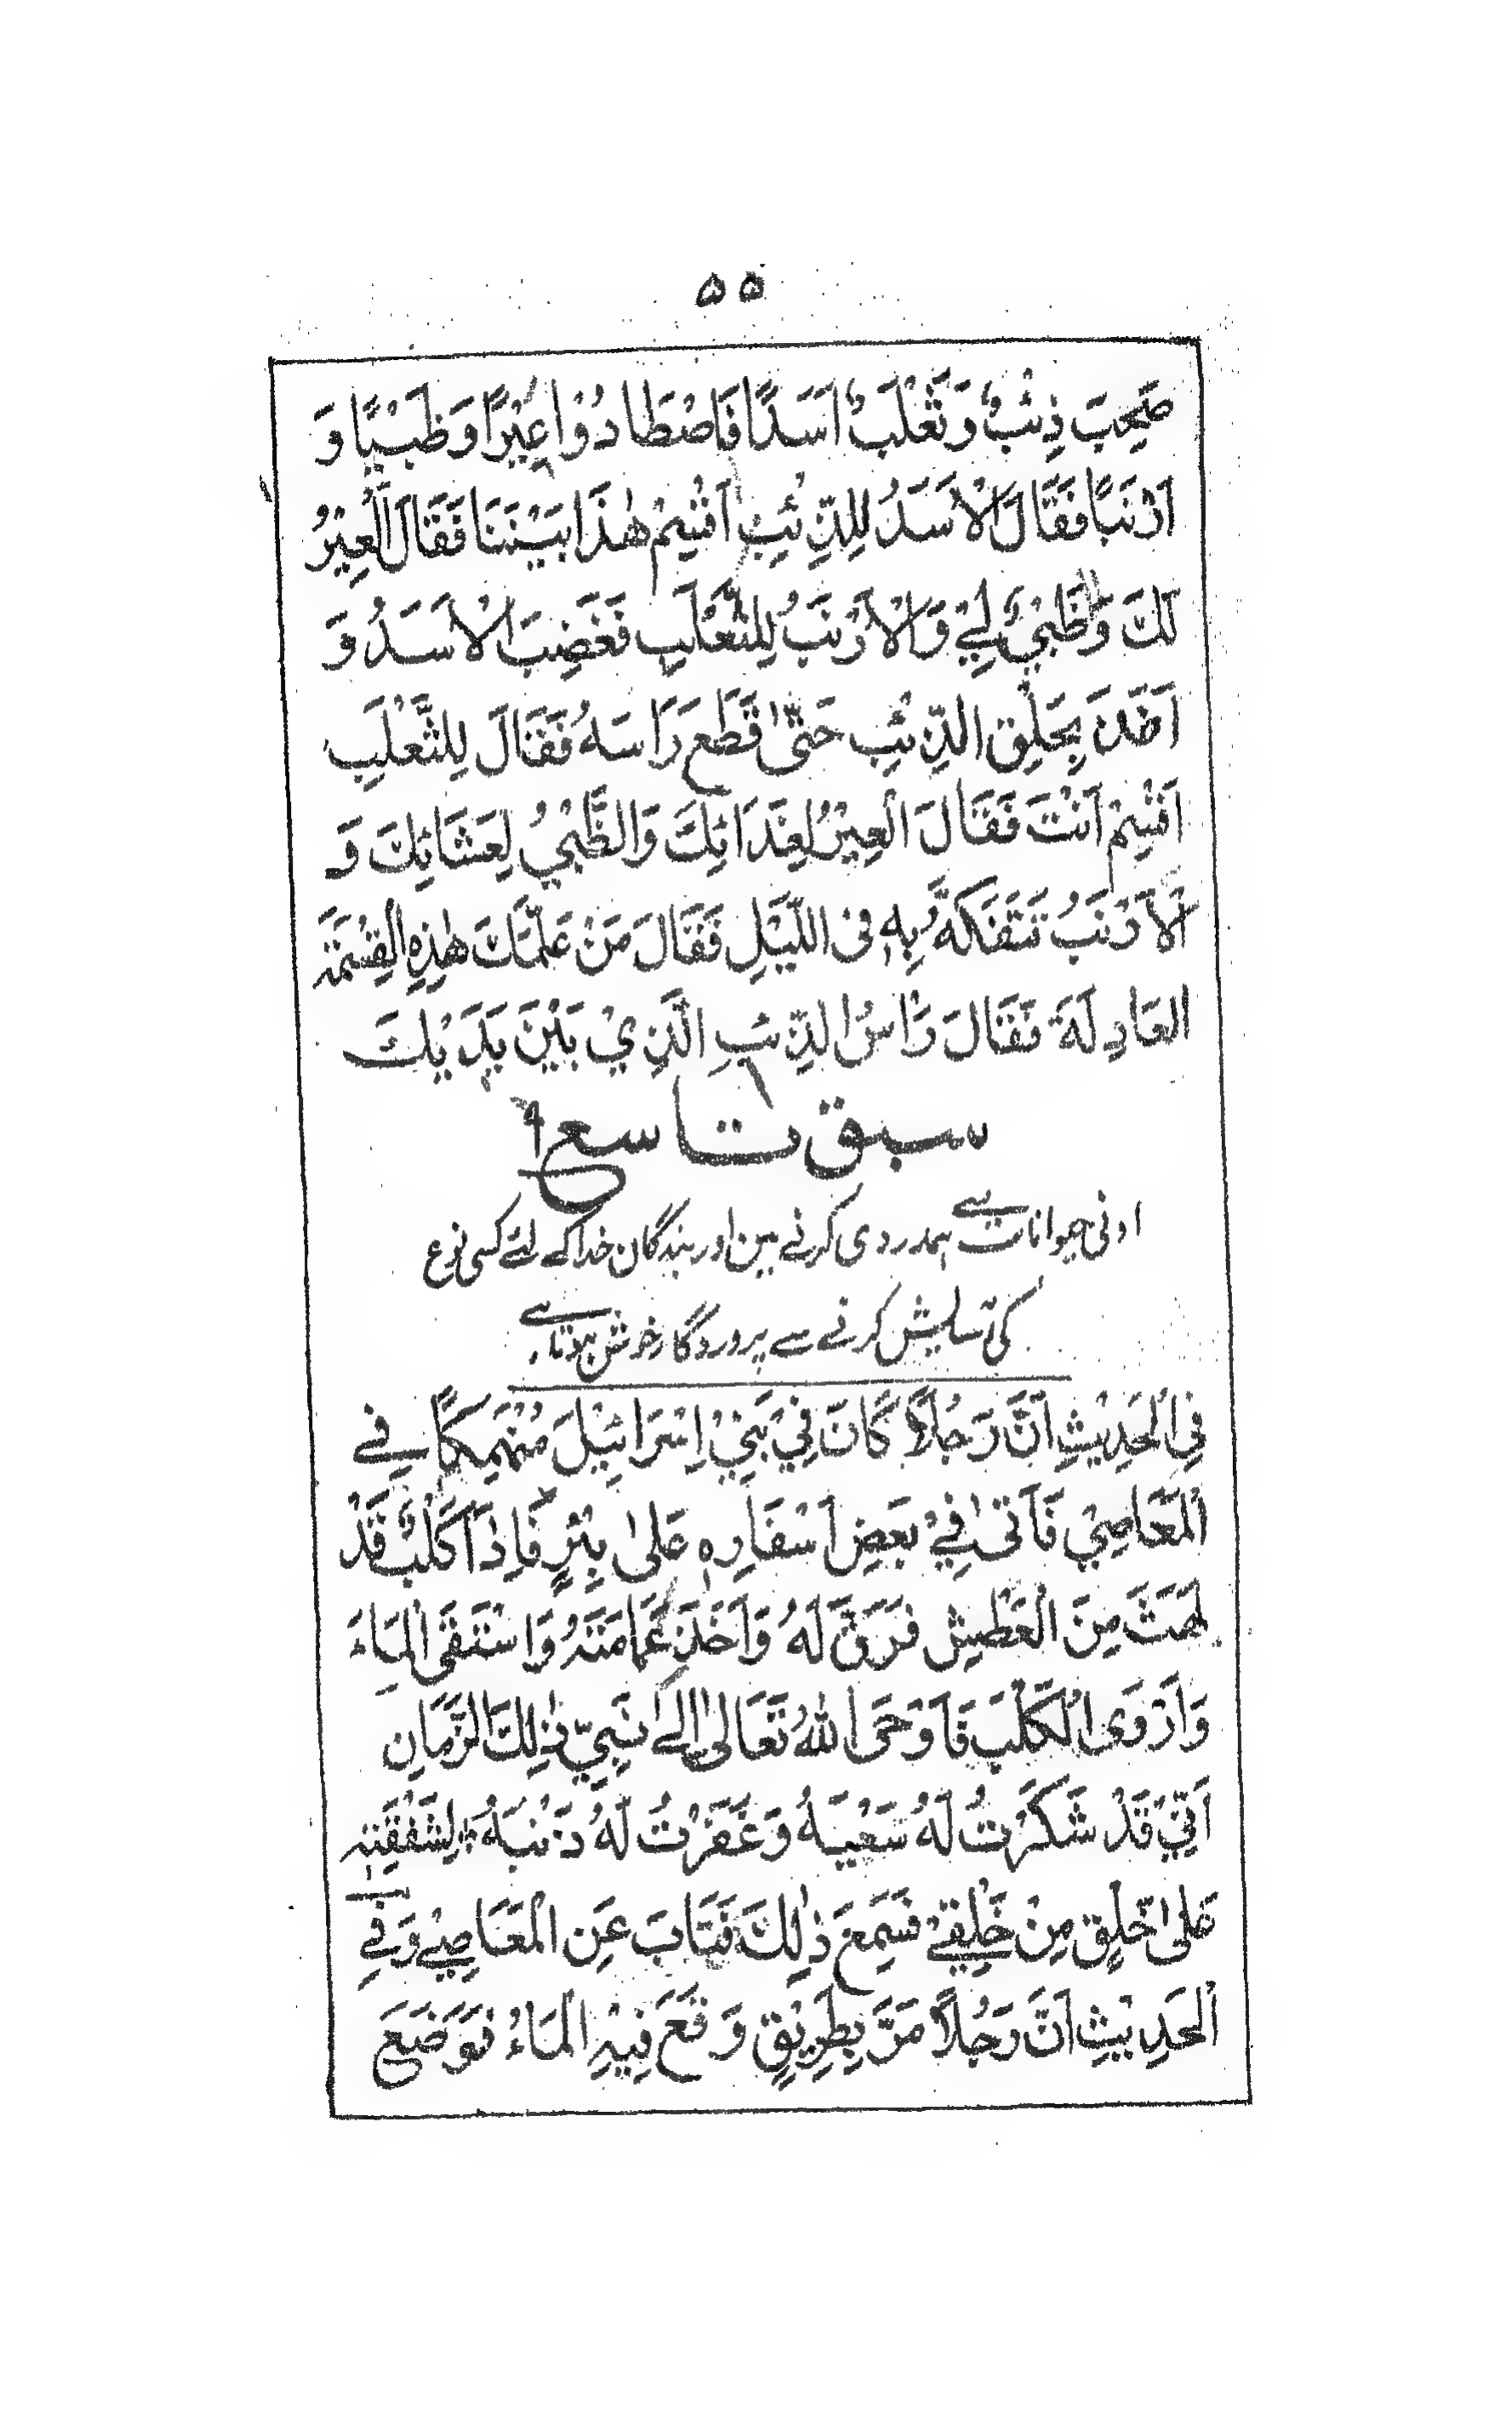 ۵۵
صَحِبَ ذِئْبٌ وَ ثَعْلَبٌ اَسَدًا فَاصْطَادُوْا عِيْرًا وَ ظَبْيًا وَ
اَرْنَبًا فَقَالَ الْاَسَدُ لِلذِّئْبِ اَقْسِمْ هٰذَا بَيْنَنَا فَقَالَ الْعِيْرُ
لَكَ وَالظَّبْيُ لِيْ وَالْاَرْنَبُ لِلثَّعْلَبِ فَغَضِبَ الْاَسَدُ وَ
اَخَذَ بِحَلْقِ الذِّئْبِ حَتّٰى قَطَعَ رَاسَهُ فَقَالَ لِلثَّعْلَبِ
اَقْسِمْ اَنْتَ فَقَالَ الْعِيْرُ لِغَدَائِكَ وَالظَّبْيُ لِعَشَائِكَ وَ
الْاَرْنَبُ تَتَفَكَّهُ بِهٖ فِى اللَّيْلِ فَقَالَ مَنْ عَلَّمَكَ هٰذِهِ الْقِسْمَةَ
العَادِلَةَ فَقَالَ رَاْسُ الذِّئْبِ الَّذِيْ بَيْنَ يَدَيْكَ
سبق تاسع ۹
ادنی حیوانات سے ہمدردی کرنے مین اور بندگان خدا کے لئے کسی نوع
کی آسایش کرنے سے پروردگار خوش ہوتا ہے
فِى الْحَدِيْثِ اَنَّ رَجُلًا كَانَ فِيْ بَنِيْ اِسْرَائِيْلَ مُنْهَمِكًا فِے
الْمَعَاصِيْ فَاَتٰى فِيْ بَعْضِ اَسْفَارِهٖ عَلٰى بِئْرٍ فَاِذَا كَلْبٌ قَدْ
لَهَثَ مِنَ الْعَطَشِ فَرَقَّ لَهُ وَاَخَذَ عَمَامَتَهُ وَاسْتَقَى الْمَاءَ
وَاَرْوَى الْكَلْبَ فَاَوْحَى اللهُ تَعَالٰى اِلٰى نَبِيِّ ذٰلِكَ الزَّمَانِ
اَنِّيْ قَدْ شَكَرْتُ لَهُ سَعْيَهُ وَغَفَرْتُ لَهُ ذَنْبَهُ لِشَفْقَتِهٖ
عَلٰى خَلْقٍ مِنْ خَلْقِيْ فَسَمِعَ ذٰلِكَ فَتَابَ عَنِ الْمَعَاصِيْ وَفِي
الْحَدِيْثِ اَنَّ رَجُلًا مَرَّ بِطَرِيْقٍ وَقَعَ فِيْهِ الْمَاءُ فَوَضَعَ